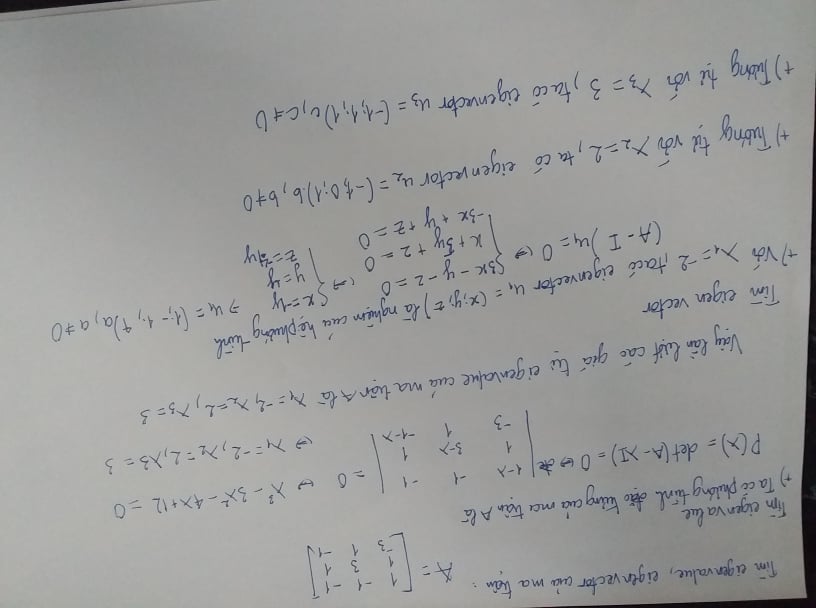 Tìm eigenvalue, eigenvector của ma trận: A = [1 -1 -1; 1 3 1; -3 1 -1]
Tìm eigenvalue
+) Ta có phương trình đặc trưng của ma trận A là
P(λ) = det(A - λI) = 0 ⇔ |1-λ -1 -1; 1 3-λ 1; -3 1 -1-λ| = 0 ⇔ λ³ - 3λ² - 4λ + 12 = 0
⇔ λ₁ = -2, λ₂ = 2, λ3 = 3
Vậy lần lượt các giá trị eigenvalue của ma trận A là λ₁ = -2, λ₂ = 2, λ₃ = 3
Tìm eigen vector
+) Với λ₁ = -2, ta có eigenvector u₁ = (x; y; z) là nghiệm của hệ phương trình
(A - I)u₁ = 0 ⇔ {3x - y - z = 0; x + 5y + z = 0; -3x + y + z = 0 ⇔ {x = -y; y = y; z = -4y ⇒ u₁ = (1; -1; 4)a, a ≠ 0
+) Tương tự với λ₂ = 2, ta có eigenvector u₂ = (-1; 0; 1).b, b ≠ 0
+) Tương tự với λ₃ = 3, ta có eigenvector u₃ = (-1; 1; 1)c, c ≠ 0